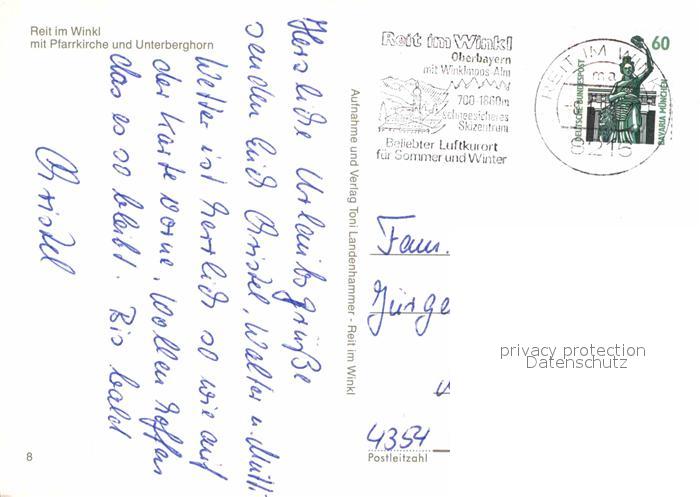 Reit im Winkl
mit Pfarrkirche und Unterberghorn
Herzliche Urlaubsgrüße
senden Euch Christel, Walter u. Mutti
Wetter ist herrlich so wie auf
der Karte vorne. Wollen hoffen
das es so bleibt. Bis bald
Christel
8
Aufnahme und Verlag Toni Landenhammer - Reit im Winkl
Reit im Winkl
Oberbayern
mit Winklmoos Alm
700-1860m
schneesicheres
Skizentrum
Beliebter Luftkurort
für Sommer und Winter
REIT IM WI
ma
8216
60
DEUTSCHE BUNDESPOST
BAVARIA MÜNCHEN
Fam.
Jürge
4354
Postleitzahl
privacy protection
Datenschutz